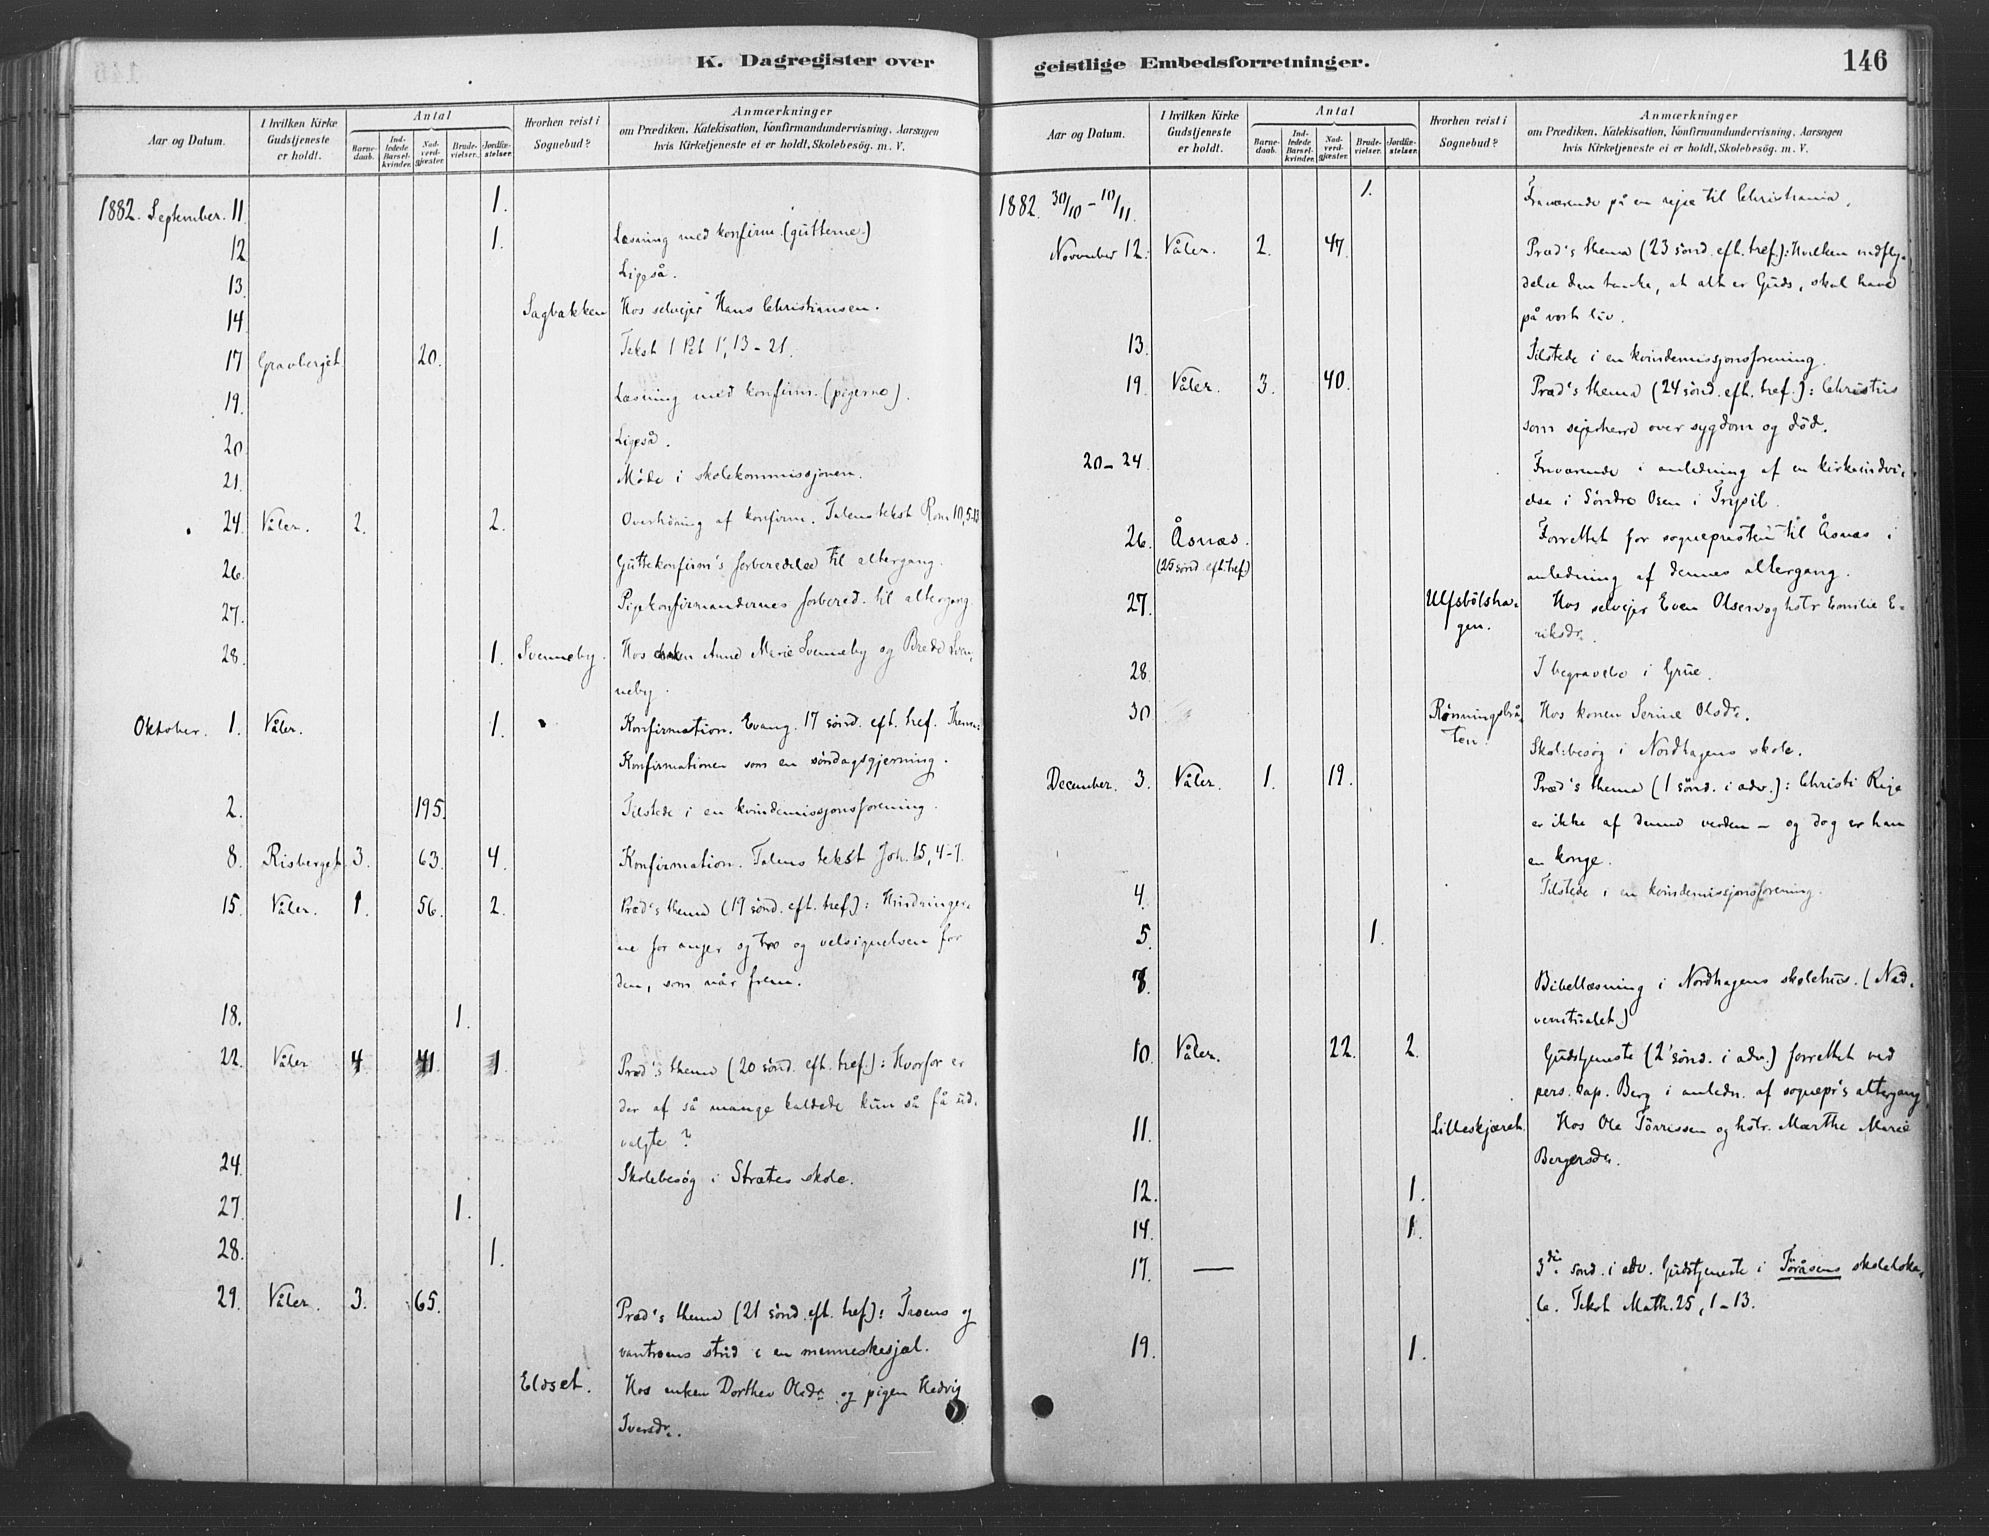 K. Dagregister over
Aar og Datum.
I hvilken Kirke Gudstjeneste er holdt.
Antal
Barnedaab.
Indledede Barselkvinder.
Nadverdgjæster.
Brudevielser.
Jordfæstelser.
Hvorhen reist i Sognebud?
Anmærkninger
om Prædiken, Katekisation, Konfirmandundervisning, Aarsagen
hvis Kirketjeneste ei er holdt, Skolebesøg. m. V.
1882. September. 11. 1.
12 1. Læsning med konfirm. (gutterne.)
13. Ligeså.
14 Sagbakken Hos selvejer Hans Christiansen.
17 Gravberget 20. Tekst 1 Pet 1, 13-21.
19. Læsning med konfirm. (pigerne).
20 Ligeså.
21. Møde i skolekommissjonen.
24. Våler. 2. 2. Overhöring af konfirm. Talens tekst Rom 10, 5-13
26. Guttekonfirm's forberedelse til altergang.
27. Pigekonfirmandernes forbered. til altergang
28. 1. Svenneby. Hos enken Anne Marie Svenneby og Brede Sven-
neby.
Oktober. 1. Våler. 1. Konfirmation. Evang. 17 sönd. eft. tref. Thema:
Konfirmationen som en söndagsgjerning.
2. 195. Tilstede i en kvindemissjonsforening.
8. Risberget. 3. 63. 4. Konfirmation. Talens tekst Joh. 15, 4-7.
15. Våler. 1. 56. 2. Præd's thema (19 sönd. eft. tref.): Hindringer-
ne for anger og tro og velsignelsen for
den, som når frem.
18. 1.
22. Våler 4 41 1 Præd's thema (20 sönd. eft. tref.): Hvorfor er
der af så mange kaldede kun så få ud-
valgte?
24. Skolebesøg i Strætes skole.
27. 1.
28. 1.
29. Våler. 3. 65. Præd's thema (21 sönd. eft. tref): Troens og
vantroens strid i en menneskesjæl.
Eldset. Hos enken Dorthea Olsdr. og pigen Hedvig
Iversdr.
geistlige Embedsforretninger.
146
Aar og Datum.
I hvilken Kirke Gudstjeneste er holdt.
Antal
Barnedaab.
Indledede Barselkvinder.
Nadverdgjæster.
Brudevielser.
Jordfæstelser.
Hvorhen reist i Sognebud?
Anmærkninger
om Prædiken, Katekisation, Konfirmandundervisning, Aarsagen
hvis Kirketjeneste ei er holdt, Skolebesøg. m. V.
1882. 30/10 - 10/11. 1. Fraværende på en rejse til Christiania.
November 12. Våler. 2. 47. Præd's thema (23 sönd. eft. tref.): Hvilken indfly-
delse den tanke, at alt er Guds, skal have
på vort liv.
13. Tilstede i en kvindemissjonsforening.
19. Våler. 3. 40. Præd's thema (24 sönd. eft. tref.): Christus
som sejerherre over sygdom og död.
20-24. Fraværende i anledning af en kirkeindvi-
else i Söndre Osen i Trysil.
26. Åsnæs. Forrettet for sognepresten til Åsnæs i
(25 sönd. eft. tref) anledning af dennes altergang.
27. Ulfsbölsha- Hos selvejer Even Olsen og hstr Emilie E-
gen. riksdr.
28. I begravelse i Grue.
30 Rønningsbrå- Hos konen Serine Olsdr.
ten. Skolebesøg i Nordhagens skole.
December. 3. Våler. 1. 19. Præd's thema (1 sönd. i adv.): Christi Rige
er ikke af denne verden - og dog er han
en konge.
4. Tilstede i en kvindemissjonsforening.
5. 1.
Bibellæsning i Nordhagens skolehus. (Nad-
10. Våler. 22. 2. Gudstjeneste (2 sönd. i adv.) forrettet ved
pers. kap. Berg i anledn. af sognepr's altergang
11. Lilleskjæret. Hos Ole Törrissen og hstr. Marthe Marie
Bergersdr.
12. 1.
14. 1.
17. — 3die sönd. i adv. Gudstjeneste i Töråsens skoleloka-
le. Tekst Math. 25, 1-13.
19. 1.